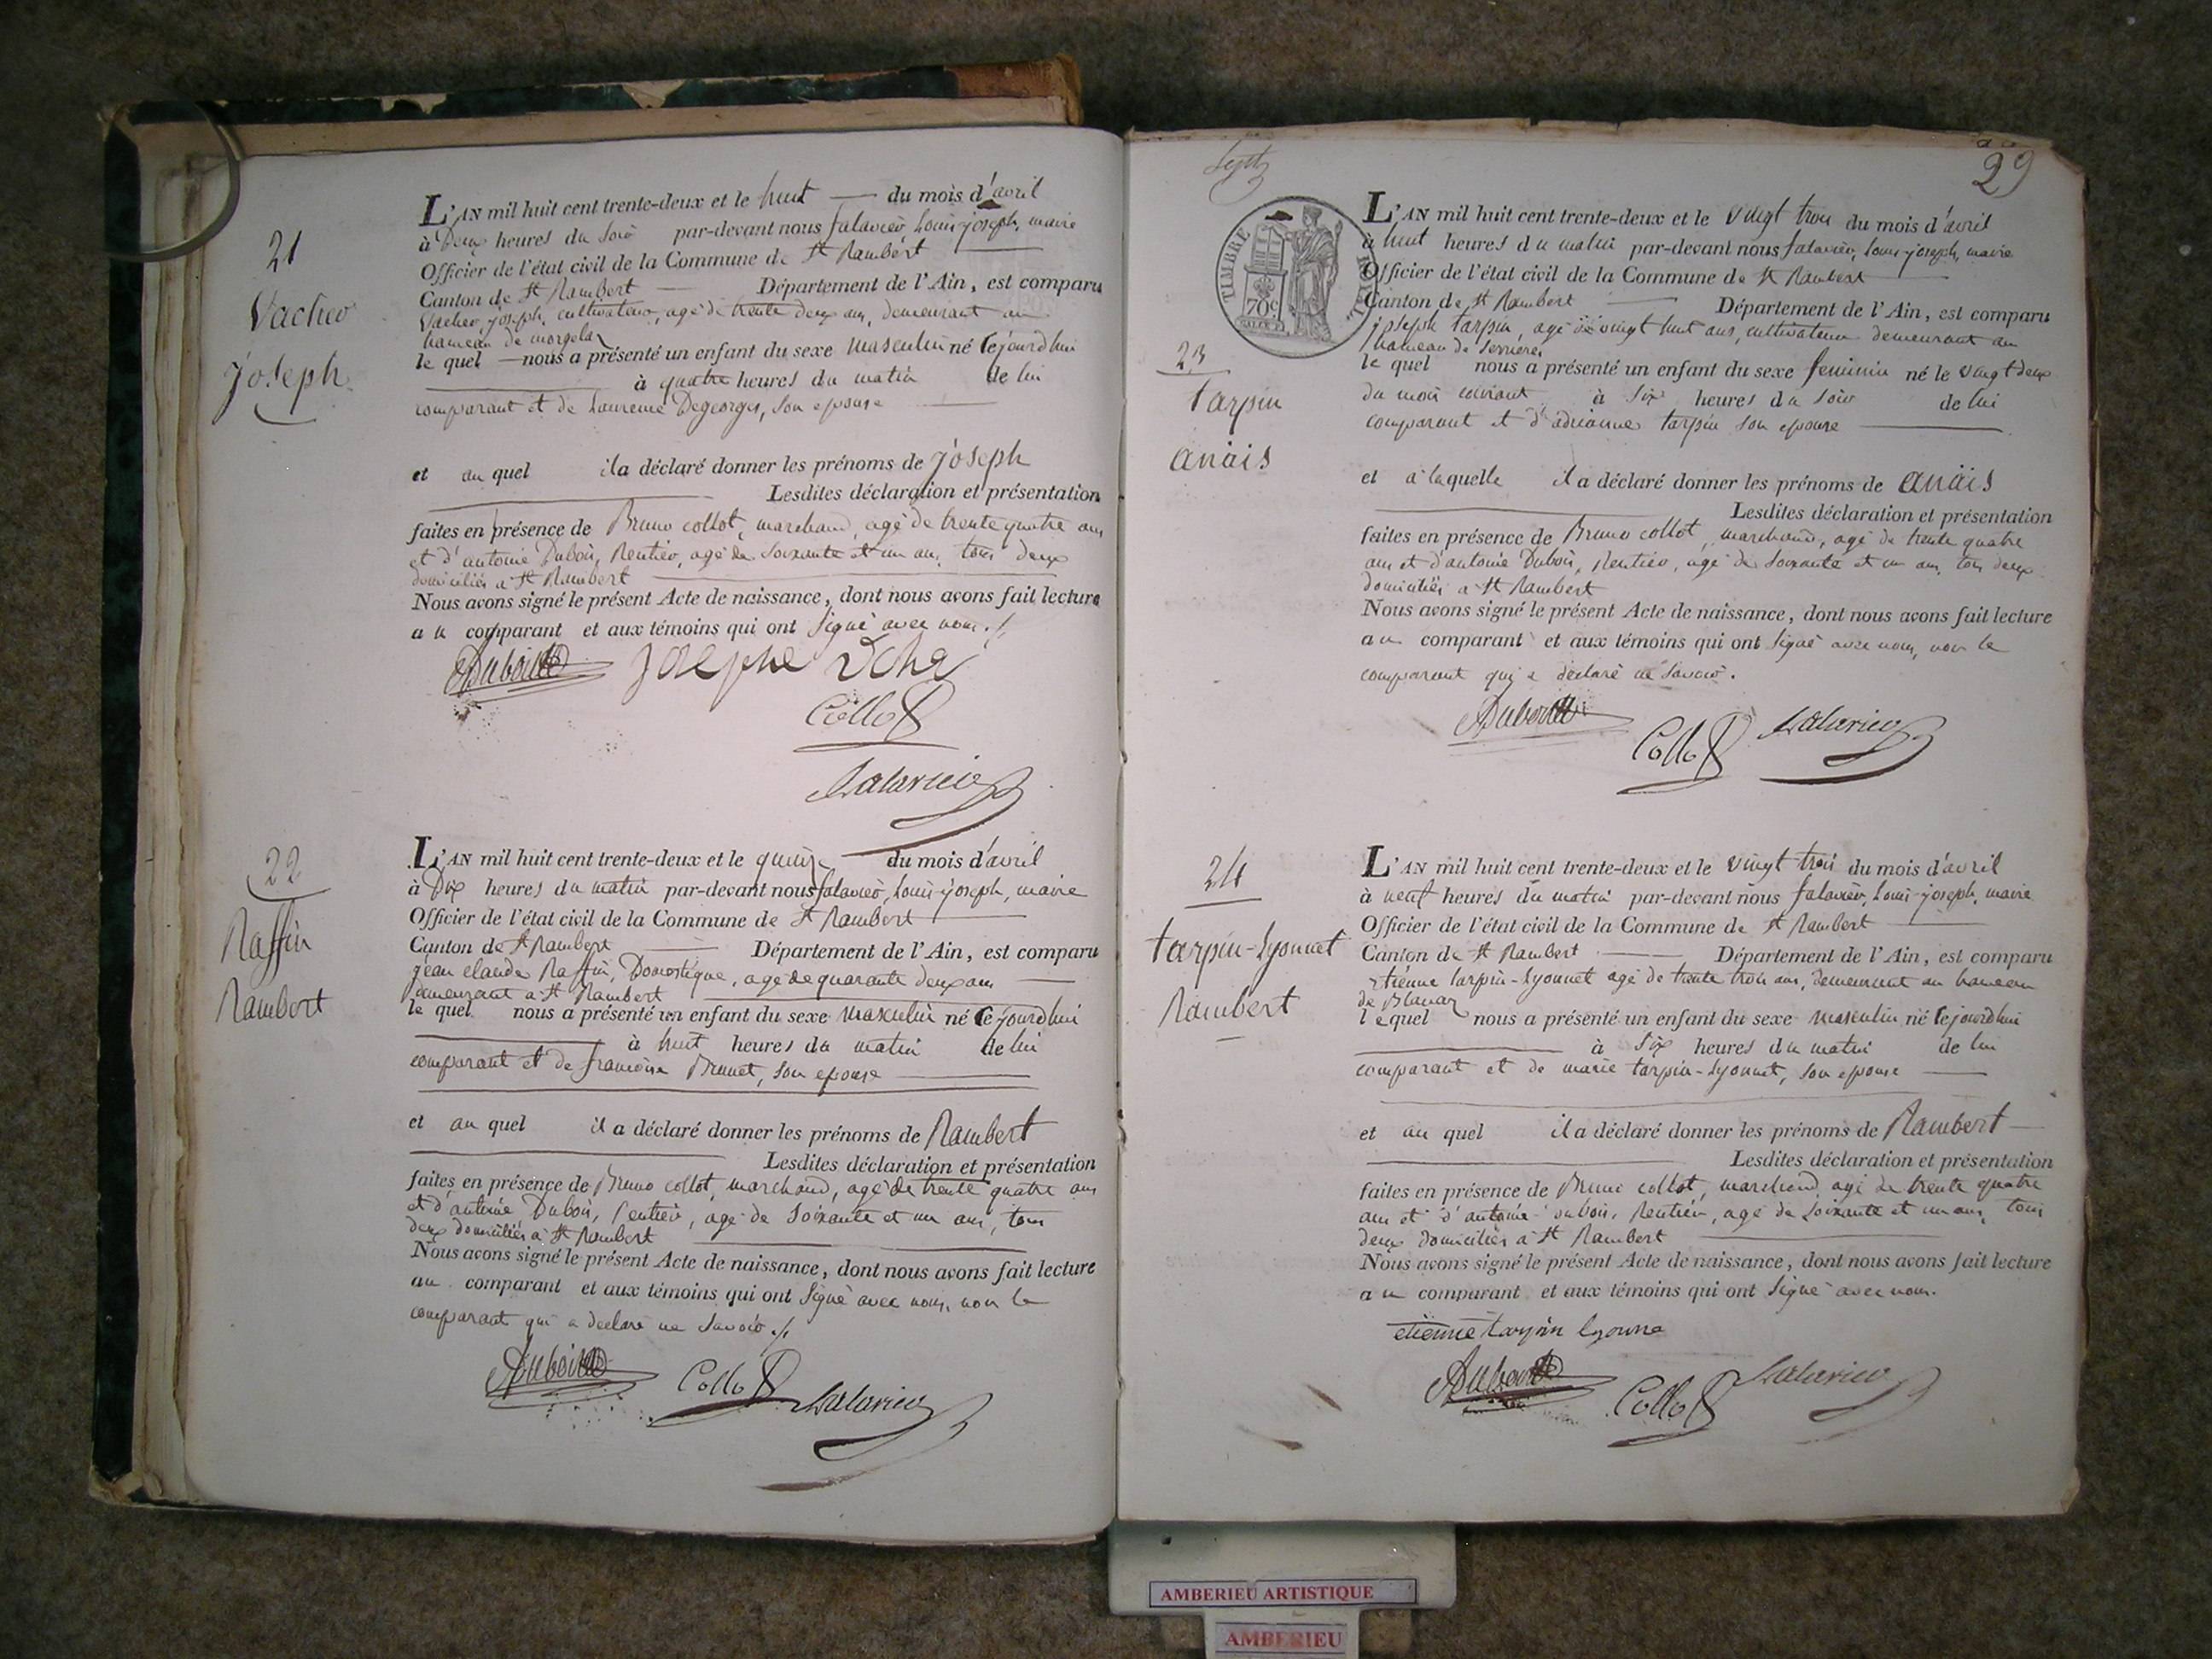 21
Vacher
joseph
L'AN mil huit cent trente-deux et le huit du mois d'avril
à Deux heures du soir par-devant nous falavier, Louis-joseph, maire
Officier de l'état civil de la Commune de St Rambert
Canton de St Rambert Département de l'Ain, est comparu
Vacher, joseph, cultivateur, agé de trente deux ans, demeurant au
hameau de morgelas
le quel nous a présenté un enfant du sexe masculin né cejourdhui
à quatre heures du matin de lui
comparant et de Laurence Degeorges, son epouse
et au quel il a déclaré donner les prénoms de joseph
Lesdites déclaration et présentation
faites en présence de Bruno collot, marchand, agé de trente quatre ans
et d'antoine Dubois, Rentier, agé de soixante et un ans, tous deux
domiciliés a St Rambert
Nous avons signé le présent Acte de naissance, dont nous avons fait lecture
au comparant et aux témoins qui ont signé avec nous ./.
Dubois
Collot
falavier
22
Raffin
Rambert
L'AN mil huit cent trente-deux et le quinze du mois d'avril
à Dix heures du matin par-devant nous falavier, Louis-joseph, maire
Officier de l'état civil de la Commune de St Rambert
Canton de St Rambert Département de l'Ain, est comparu
jean claude Raffin, Domestique, agé de quarante deux ans
demeurant a St Rambert
le quel nous a présenté un enfant du sexe masculin né cejourdhui
à huit heures du matin de lui
comparant et de francoise Brunet, son epouse
et au quel il a déclaré donner les prénoms de Rambert
Lesdites déclaration et présentation
faites en présence de Bruno collot, marchand, agé de trente quatre ans
et d'antoine Dubois, rentier, agé de soixante et un ans, tous
deux domiciliés a St Rambert
Nous avons signé le présent Acte de naissance, dont nous avons fait lecture
au comparant et aux témoins qui ont signé avec nous, non le
comparant qui a declaré ne savoir ./.
Dubois Collot falavier
29
TIMBRE ROYAL
70c
23
tarpin
anaïs
L'AN mil huit cent trente-deux et le vingt trois du mois d'avril
à huit heures du matin par-devant nous falavier, Louis-joseph, maire
Officier de l'état civil de la Commune de St Rambert
Canton de St Rambert Département de l'Ain, est comparu
joseph tarpin, agé de vingt huit ans, cultivateur demeurant au
hameau de Serrières
le quel nous a présenté un enfant du sexe feminin né le vingt deux
du mois courant à six heures du soir de lui
comparant et d'adrianne tarpin son epouse
et a laquelle il a déclaré donner les prénoms de anaïs
Lesdites déclaration et présentation
faites en présence de Bruno collot, marchand, agé de trente quatre
ans et d'antoine Dubois, Rentier, agé de soixante et un ans, tous deux
domiciliés a St Rambert
Nous avons signé le présent Acte de naissance, dont nous avons fait lecture
au comparant et aux témoins qui ont signé avec nous, non le
comparant qui a déclaré ne savoir.
Dubois Collot falavier
24
tarpin-Lyonnet
Rambert
L'AN mil huit cent trente-deux et le vingt trois du mois d'avril
à neuf heures du matin par-devant nous falavier, Louis-joseph, maire
Officier de l'état civil de la Commune de St Rambert
Canton de St Rambert Département de l'Ain, est comparu
etienne tarpin-Lyonnet agé de trente trois ans, demeurant au hameau
de Blanaz
lequel nous a présenté un enfant du sexe masculin né cejourdhui
à six heures du matin de lui
comparant et de marie tarpin-Lyonnet, son epouse
et au quel il a déclaré donner les prénoms de Rambert
Lesdites déclaration et présentation
faites en présence de Bruno collot, marchand, agé de trente quatre
ans et d'antoine dubois, Rentier, agé de soixante et un ans, tous
deux domiciliés a St Rambert
Nous avons signé le présent Acte de naissance, dont nous avons fait lecture
au comparant et aux témoins qui ont signé avec nous.
etienne tarpin lyonne
Dubois Collot falavier
AMBERIEU ARTISTIQUE
AMBERIEU